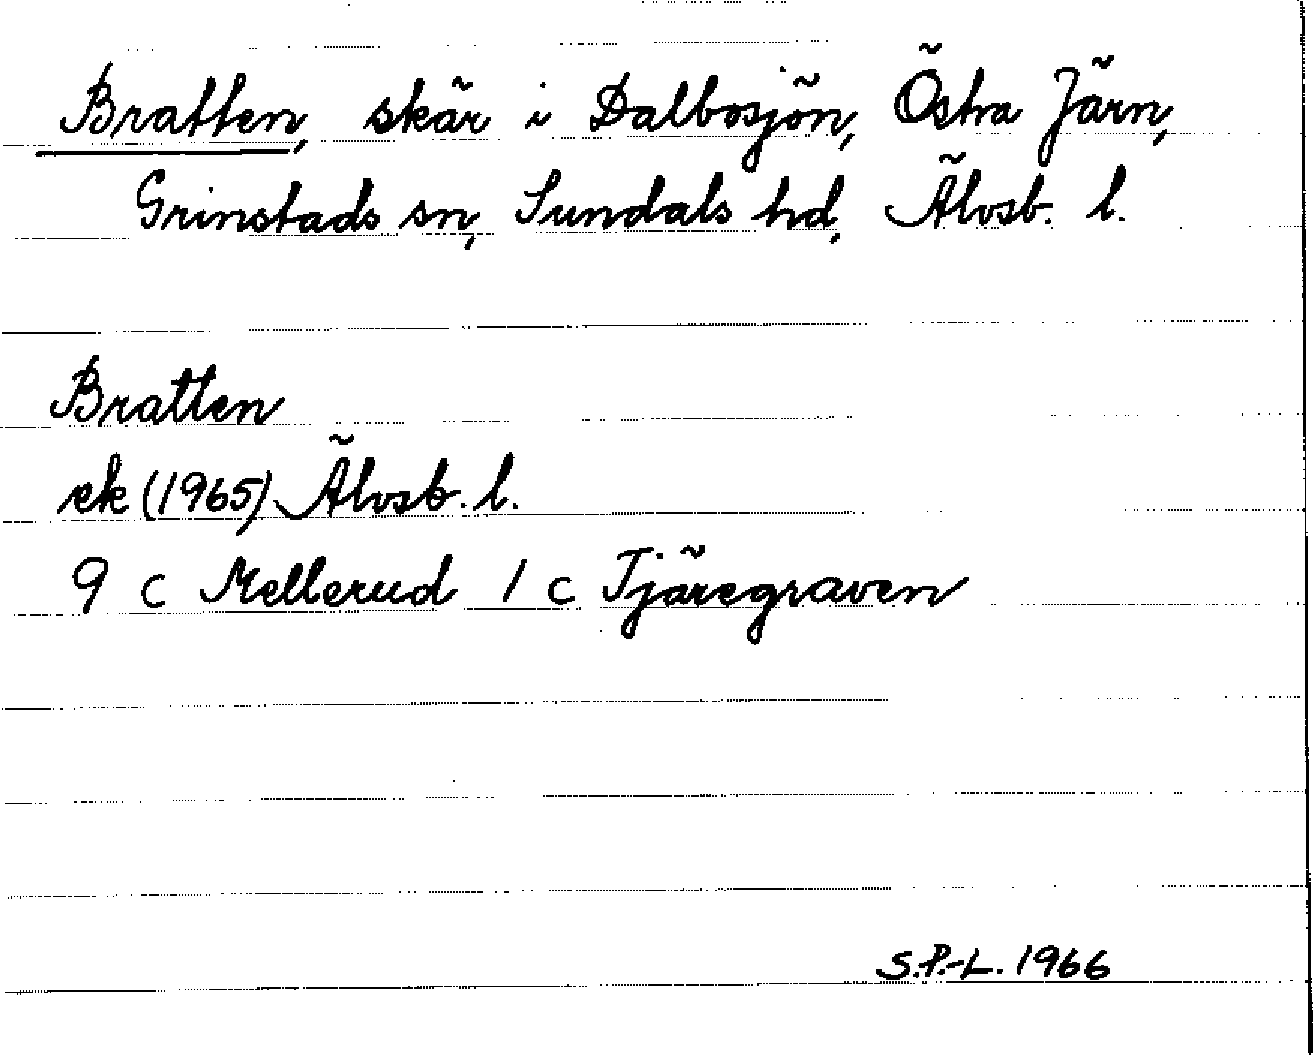 Bratten, skär i Dalbosjön, Östra Järn,
Grinstads sn, Sundals hd, Älvsb. l.
Bratten
ek (1965) Älvsb. l.
9 c Mellerud 1 c Tjäregraven
S.P.-L. 1966